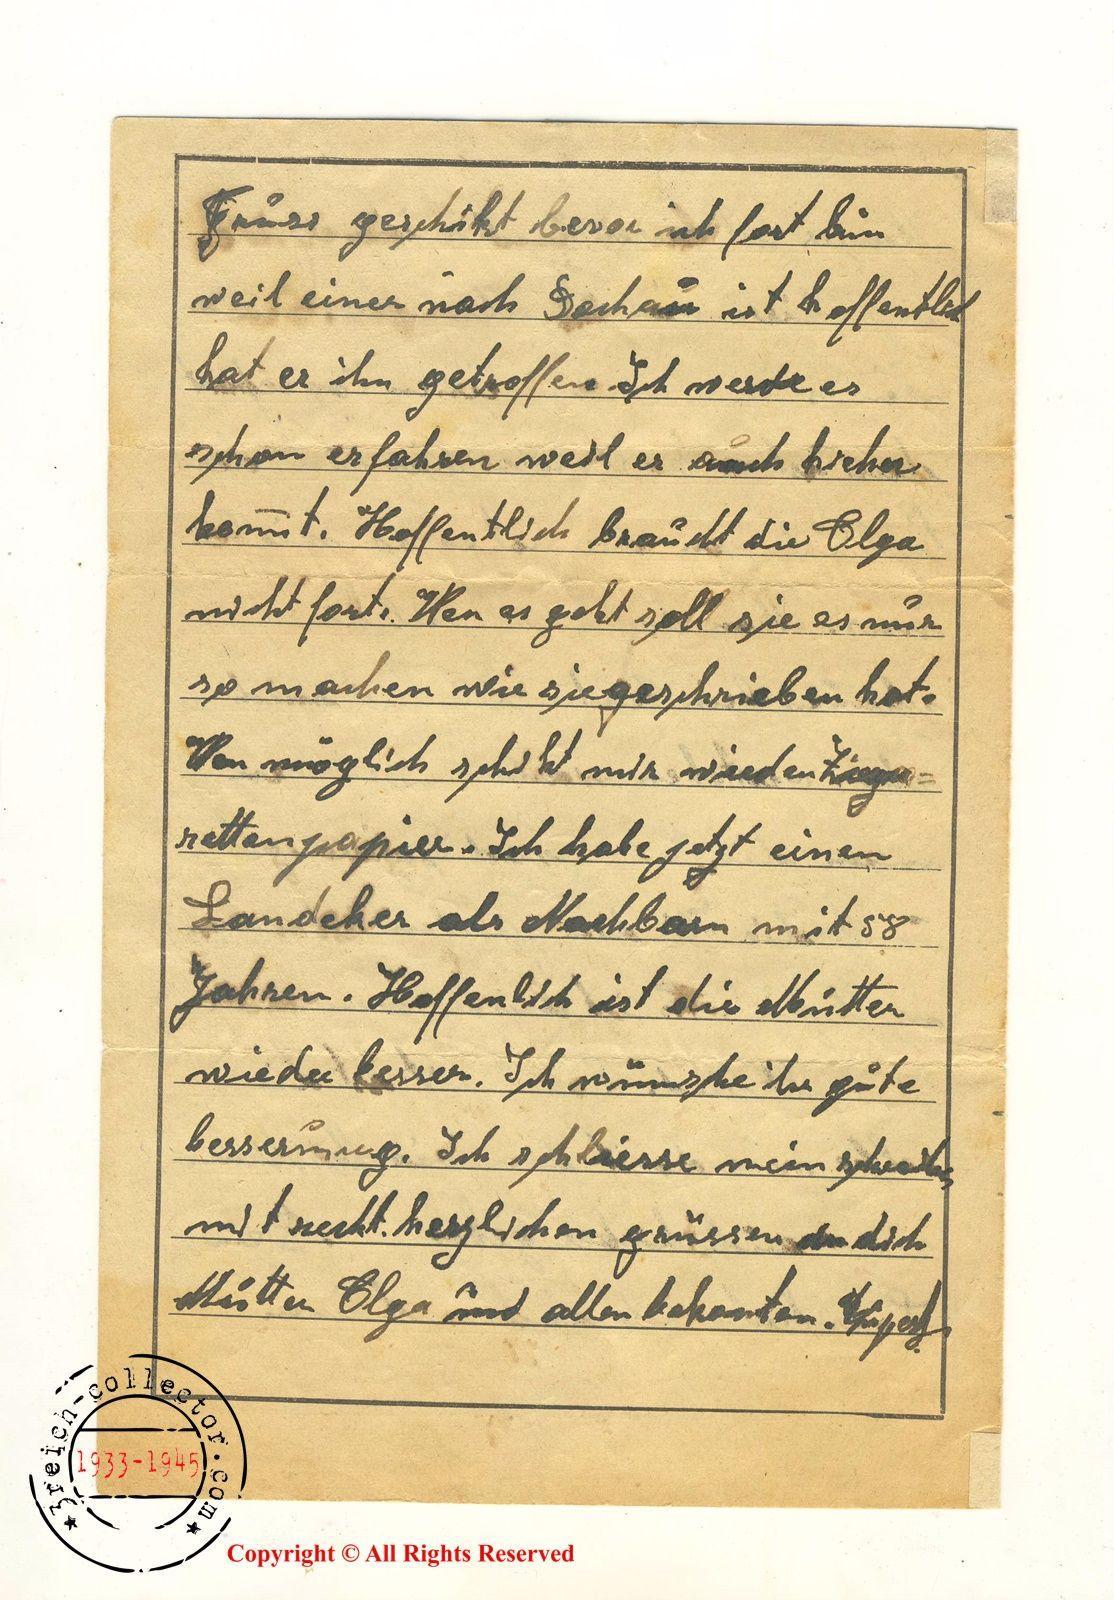 Gruss geschikt bevor ich fort bin
weil einer nach Dachau ist hoffentlich
hat er ihn getroffen Ich werde es
schon erfahren weil er auch hieher
kom̅t. Hoffentlich braucht die Olga
nicht fort. Wen es geht soll sie es nur
so machen wie sie geschrieben hat.
Wen möglich schikt mir wieder Ziega=
rettenpapier. Ich habe jetzt einen
Landeker als Nachbarn mit 58
Jahren. Hoffenlich ist die Mutter
wieder besser. Ich wünsche ihr gute
besserung. Ich schliesse mein schreiben
mit recht herzlichen grüssen an dich
Mutter Olga und allen bekanten.
3reich-collector.com
1933-1945
Copyright © All Rights Reserved